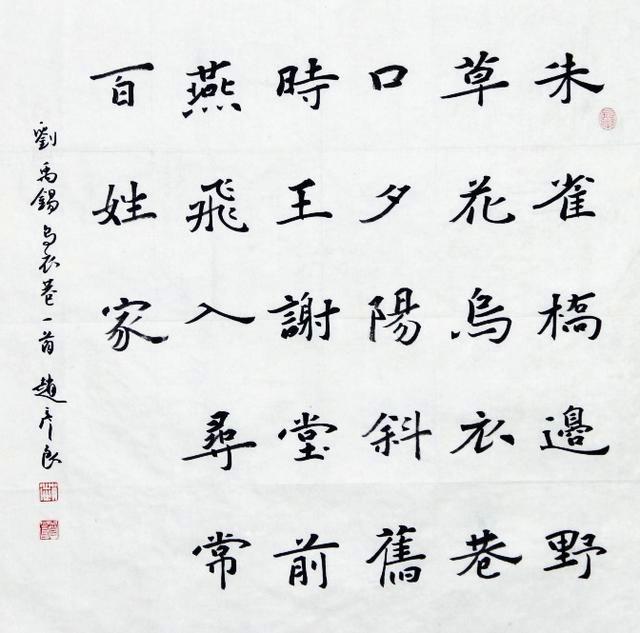 朱雀橋邊野
草花烏衣巷
口夕陽斜舊
時王謝堂前
燕飛入尋常
百姓家
劉禹錫烏衣巷一首 趙彥良